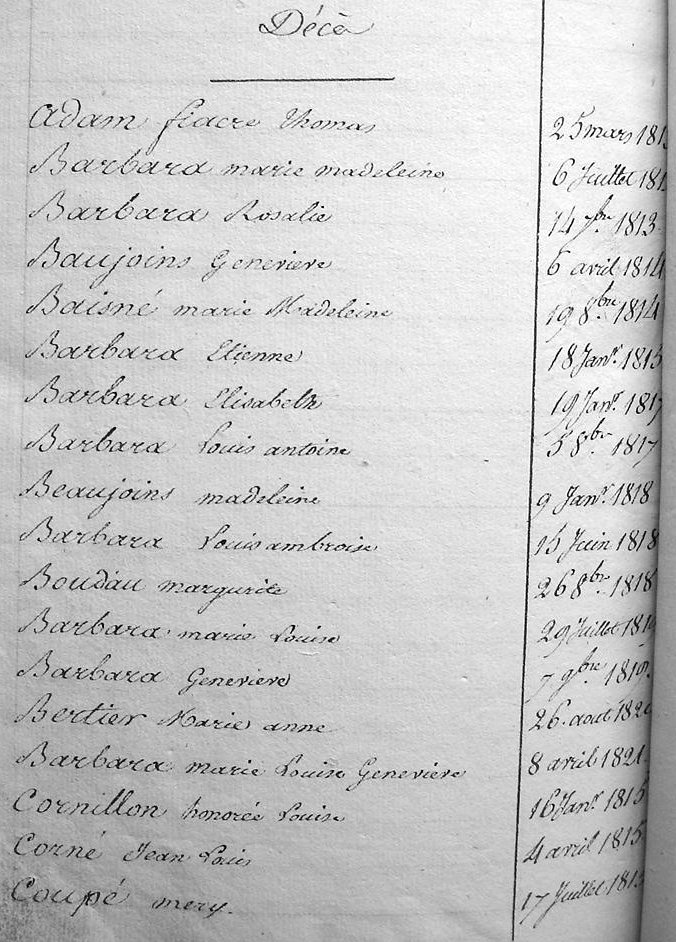 Décè
Adam fiacre thomas 25 mars 181
Barbara marie madeleine 6 Juillet 181
Barbara Rosalie 14 bre 1813
Baujoins Genevieve 6 avril 1814
Baisné marie Madeleine 19 8bre 1814
Barbara Etienne 18 Janr. 1815
Barbara Elisabeth 19 Janr. 1817
Barbara Louis antoine 5 8bre 1817
Beaujoins madeleine 9 Janr. 1818
Barbara Louis ambroise 15 Juin 1818
Boudau margurite 26 8bre 1818
Barbara marie Louise 29 Juillet 181
Barbara Genevieve 7 9bre 1819
Bertier Marie anne 26. aout 182
Barbara marie Louise Genevieve 8 avril 1821.
Cornillon honorée Louise 16 Janr. 1815
Corné Jean Louis 4 avril 1815
Coupé mery. 17 Juillet 181